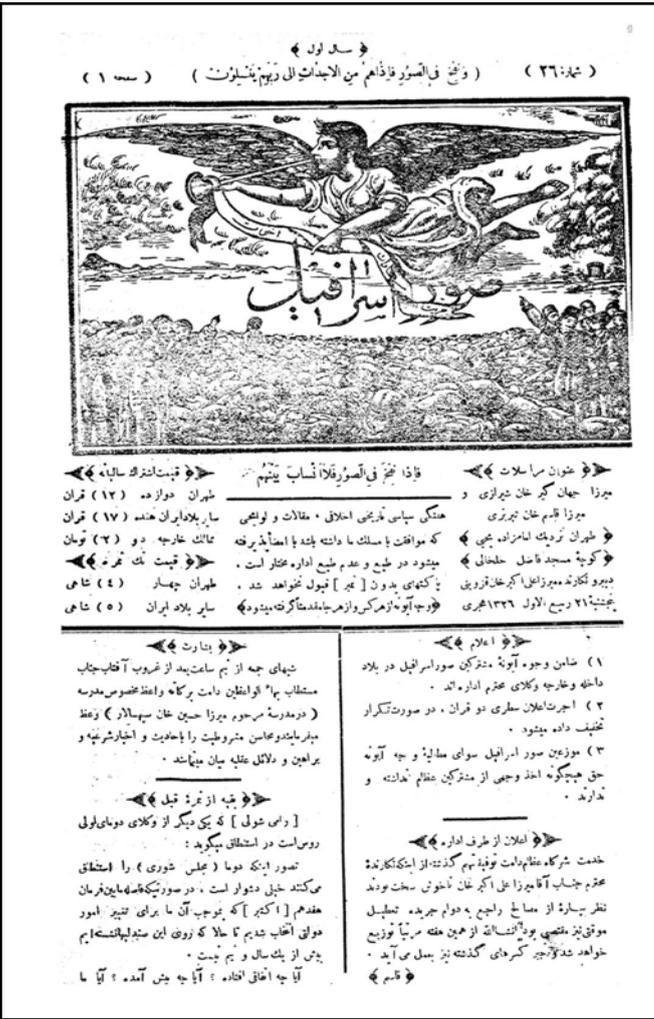 ﴿ سال اول ﴾
( شماره ۲۶ )
( وَنُفِخَ فِي الصّورِ فَإِذَاهُمْ مِنَ الاَجداثِ الى رَبِّهِمْ يَنْسِلُونَ )
( صفحه ۱ )
اخوان
صور اسرافیل
﴿ عنوان مراسلات ﴾
میرزا جهان گیر خان شیرازی و
میرزا قاسم خان تبریزی
﴿ طهران نزدیك امامزاده یحیی ﴾
﴿ کوچۀ مسجد فاضل خلخالی ﴾
دبیر و نگارنده میرزا علی اکبر خان قزوینی
پنجشنبۀ ۲۱ ربیع الاول ۱۳۲۶ هجری
فَإِذا نُفِخَ فِي الصّورِ فَلا أَنْسابَ بَيْنَهُم
هفتگی سیاسی تاریخی اخلاقی ، مقالات و لوایحی
که موافقت با مسلك ما داشته باشد با امضا پذیرفته
میشود در طبع و عدم طبع اداره مختار است .
پاکتهای بدون [ تمبر ] قبول نخواهد شد .
﴿ وجه آبونه از هر کس و از هر جا مقدمتاً گرفته میشود ﴾
﴿ قیمت اشتراك سالیانه ﴾
طهران دوازده ( ۱۲ ) قران
سایر بلاد ایران هفده ( ۱۷ ) قران
ممالك خارجه دو ( ۲ ) تومان
﴿ قیمت تك نمره ﴾
طهران چهار ( ۴ ) شاهی
سایر بلاد ایران ( ۵ ) شاهی
﴿ اعلام ﴾
۱ ) ضامن وجوه آبونۀ مشترکین صور اسرافیل در بلاد
داخله و خارجه وکلای محترم اداره اند .
۲ ) اجرت اعلان سطری دو قران ، در صورت تکرار
تخفیف داده میشود .
۳ ) موزعین صور اسرافیل سوای مطالبۀ وجه آبونه
حق هیچگونه اخذ وجهی از مشترکین عظام نداشته و
ندارند .
﴿ اعلان از طرف اداره ﴾
خدمت شرکاء عظام دامت توفیقاتهم گذشته از اینکه نگارندۀ
محترم جناب آقا میرزا علی اکبر خان ناخوش سخت بودند
نظر بپارۀ از مصالح راجع به دوام جریده تعطیل
موقتی نیز مقتضی بود انشاءالله از همین هفته مرتباً توزیع
خواهد شد و جبر کسرهای گذشته نیز بعمل می آید .
﴿ قاسم ﴾
﴿ بشارت ﴾
شبهای جمعه از نیم ساعت بعد از غروب آفتاب جناب
مستطاب بهاء الواعظین دامت برکاته واعظ مخصوص مدرسه
( در مدرسۀ مرحوم میرزا حسین خان سپهسالار ) وعظ
میفرمایند و محاسن مشروطیت را باحادیث و اخبار شرعیه و
براهین و دلائل عقلیه بیان مینمایند .
﴿ بقیه از نمرۀ قبل ﴾
[ رامی شولی ] که یکی دیگر از وکلای دومای اولی
روس است در استنطاق میگوید :
تصور اینکه دوما ( مجلس شوری ) را استنطاق
می کنند خیلی دشوار است ، در صورتیکه فاصله مابین فرمان
هفدهم [ اکتبر ] که بموجب آن ما برای تغییر امور
دولتی انتخاب شدیم تا حالا که روی این صندلیها نشسته ایم
بیش از یك سال و نیم نیست .
آیا چه اتفاقی افتاده ؟ آیا چه پیش آمده ؟ آیا ما